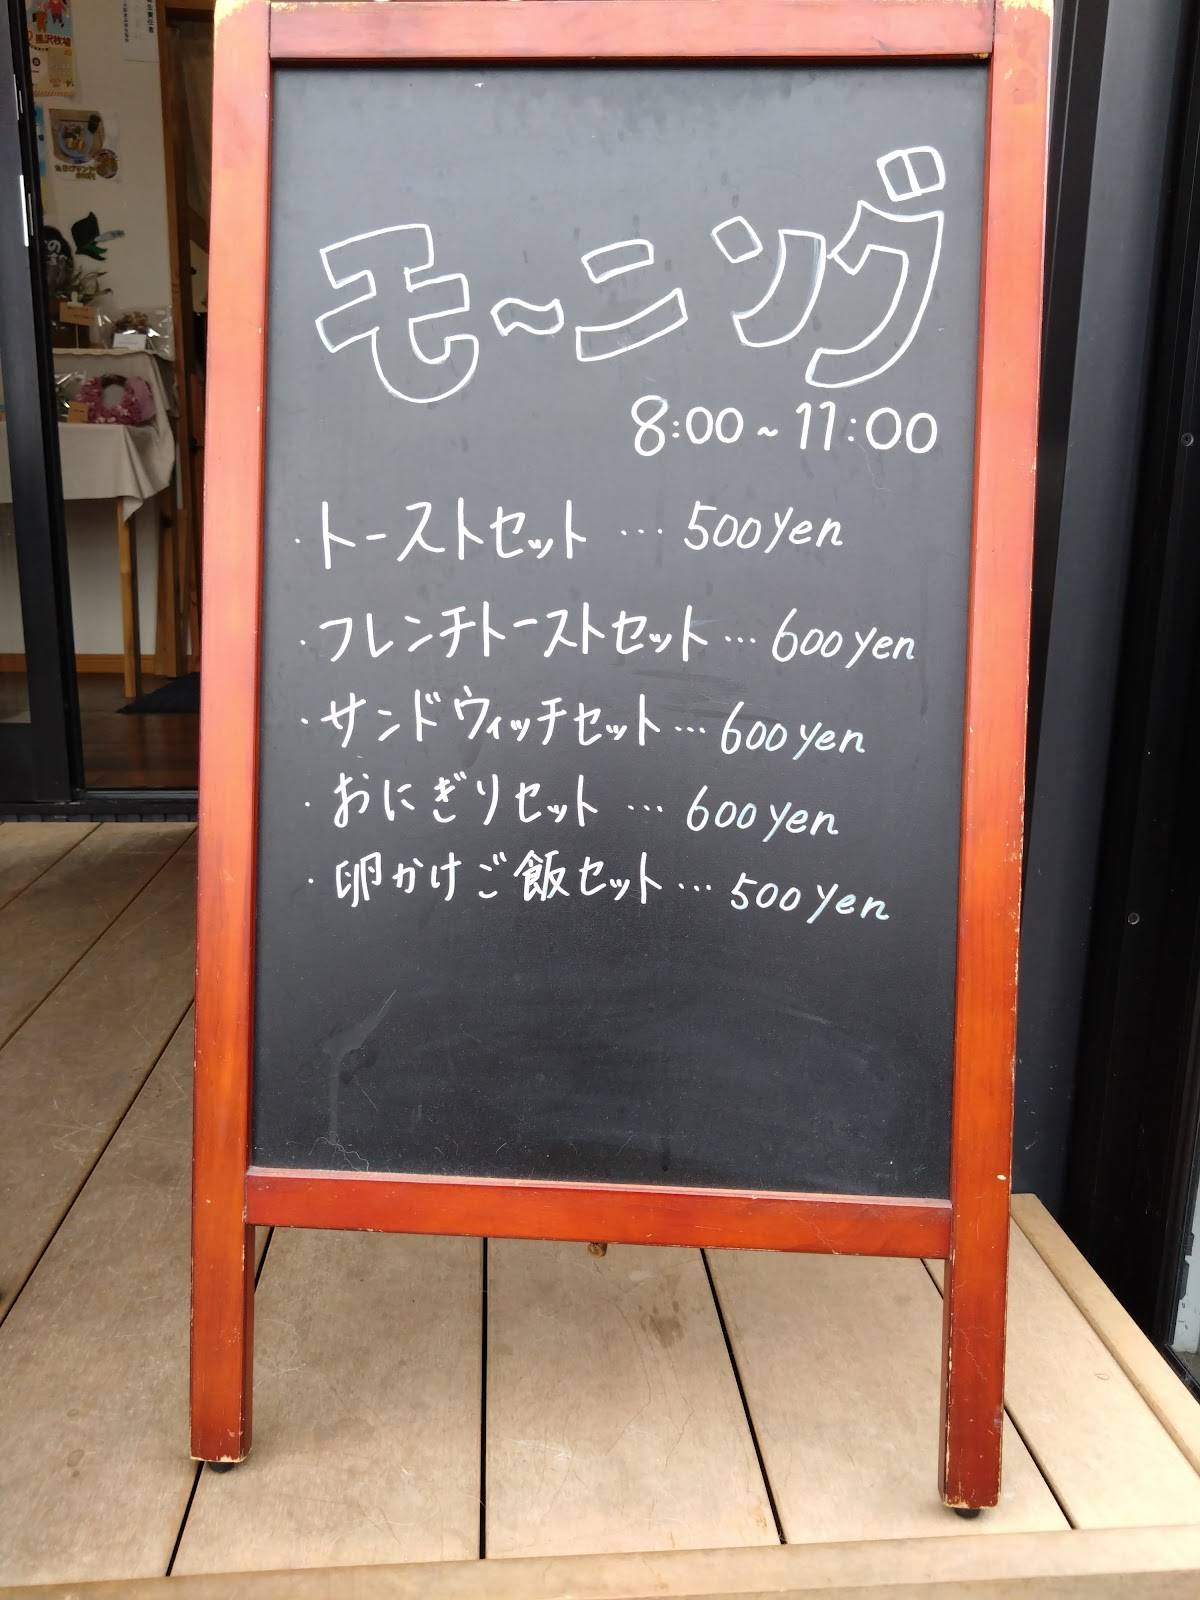 モーニング
8:00~11:00
・トーストセット…500yen
・フレンチトーストセット…600yen
・サンドウィッチセット…600yen
・おにぎりセット…600yen
・卵かけご飯セット…500yen